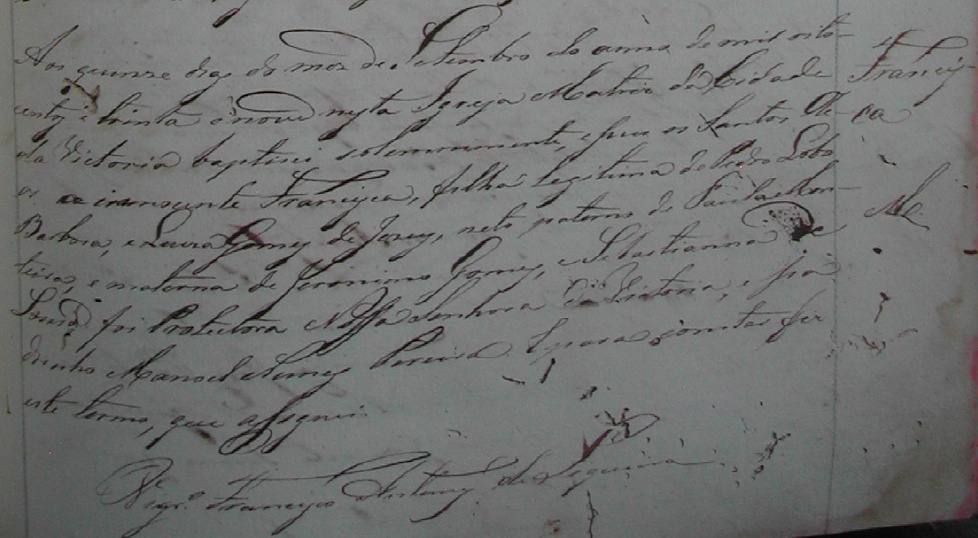 Aos quinze dias do mez de Setembro do anno de mil oito-
centos e trinta e nove nesta Igreja Matriz da Cidade
da Victoria baptisei solemnemente, e puz os Santos Ole-
os a innocente Francisca, filha legitima de Pedro Lobo
Barbosa, e Luiza Gomes de Jesus, neta paterna de Paula Mon-
teira, e materna de Jeronimo Gomes, e Sebastianna de
Sousa, foi Protectora Nossa Senhora da Victoria, e pa-
drinho Manoel Nunes Pereira. E para constar fiz
este termo, que assignei.
Vigr.º Francisco Antunes de Siqueira
Francis-
ca